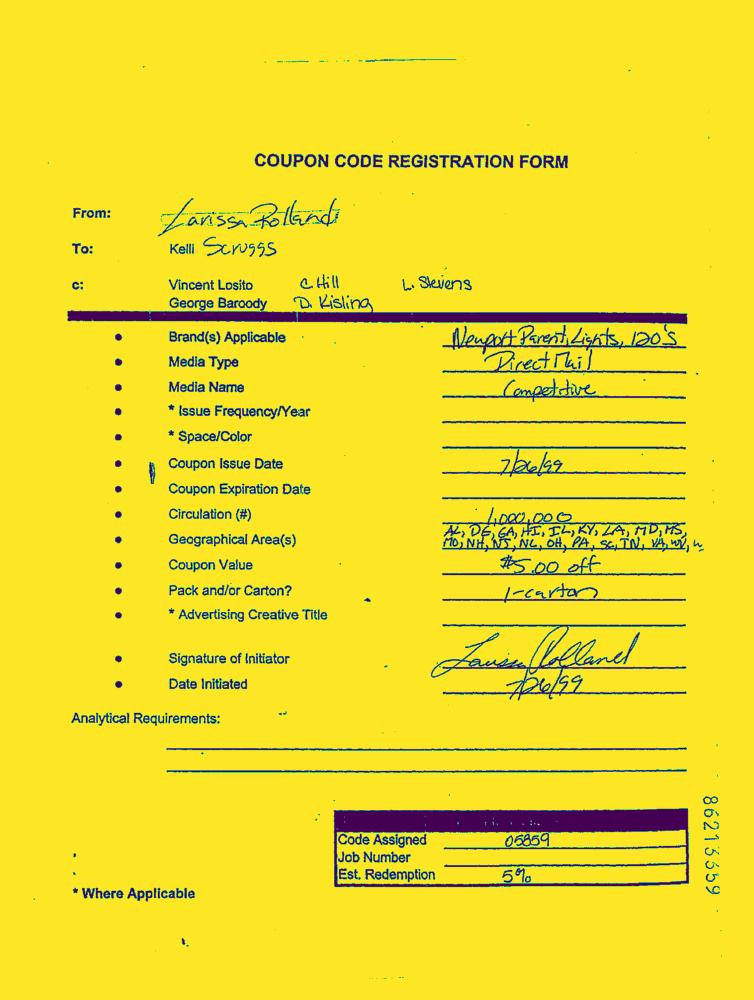 COUPON CODE REGISTRATION FORM
From: Larissa Rolland
To: Kelli Scruggs
c: Vincent Losito C Hill L. Stevens
George Baroody D. Kisling
• Brand(s) Applicable Newport Parent, Lights, 120's
• Media Type Direct Mail
• Media Name Competitive
• * Issue Frequency/Year
• * Space/Color
• Coupon Issue Date 7/26/99
• Coupon Expiration Date
• Circulation (#) 1,000,000
• Geographical Area(s) AL, DE, GA, HI, IL, KY, LA, MD, MS,
MO, NH, NJ, NC, OH, PA, SC, TN, VA, WV,
• Coupon Value $5.00 off
• Pack and/or Carton? 1-carton
• * Advertising Creative Title
• Signature of Initiator Larissa Rolland
• Date Initiated 7/26/99
Analytical Requirements:
Code Assigned 05859
Job Number
Est. Redemption 5%
* Where Applicable